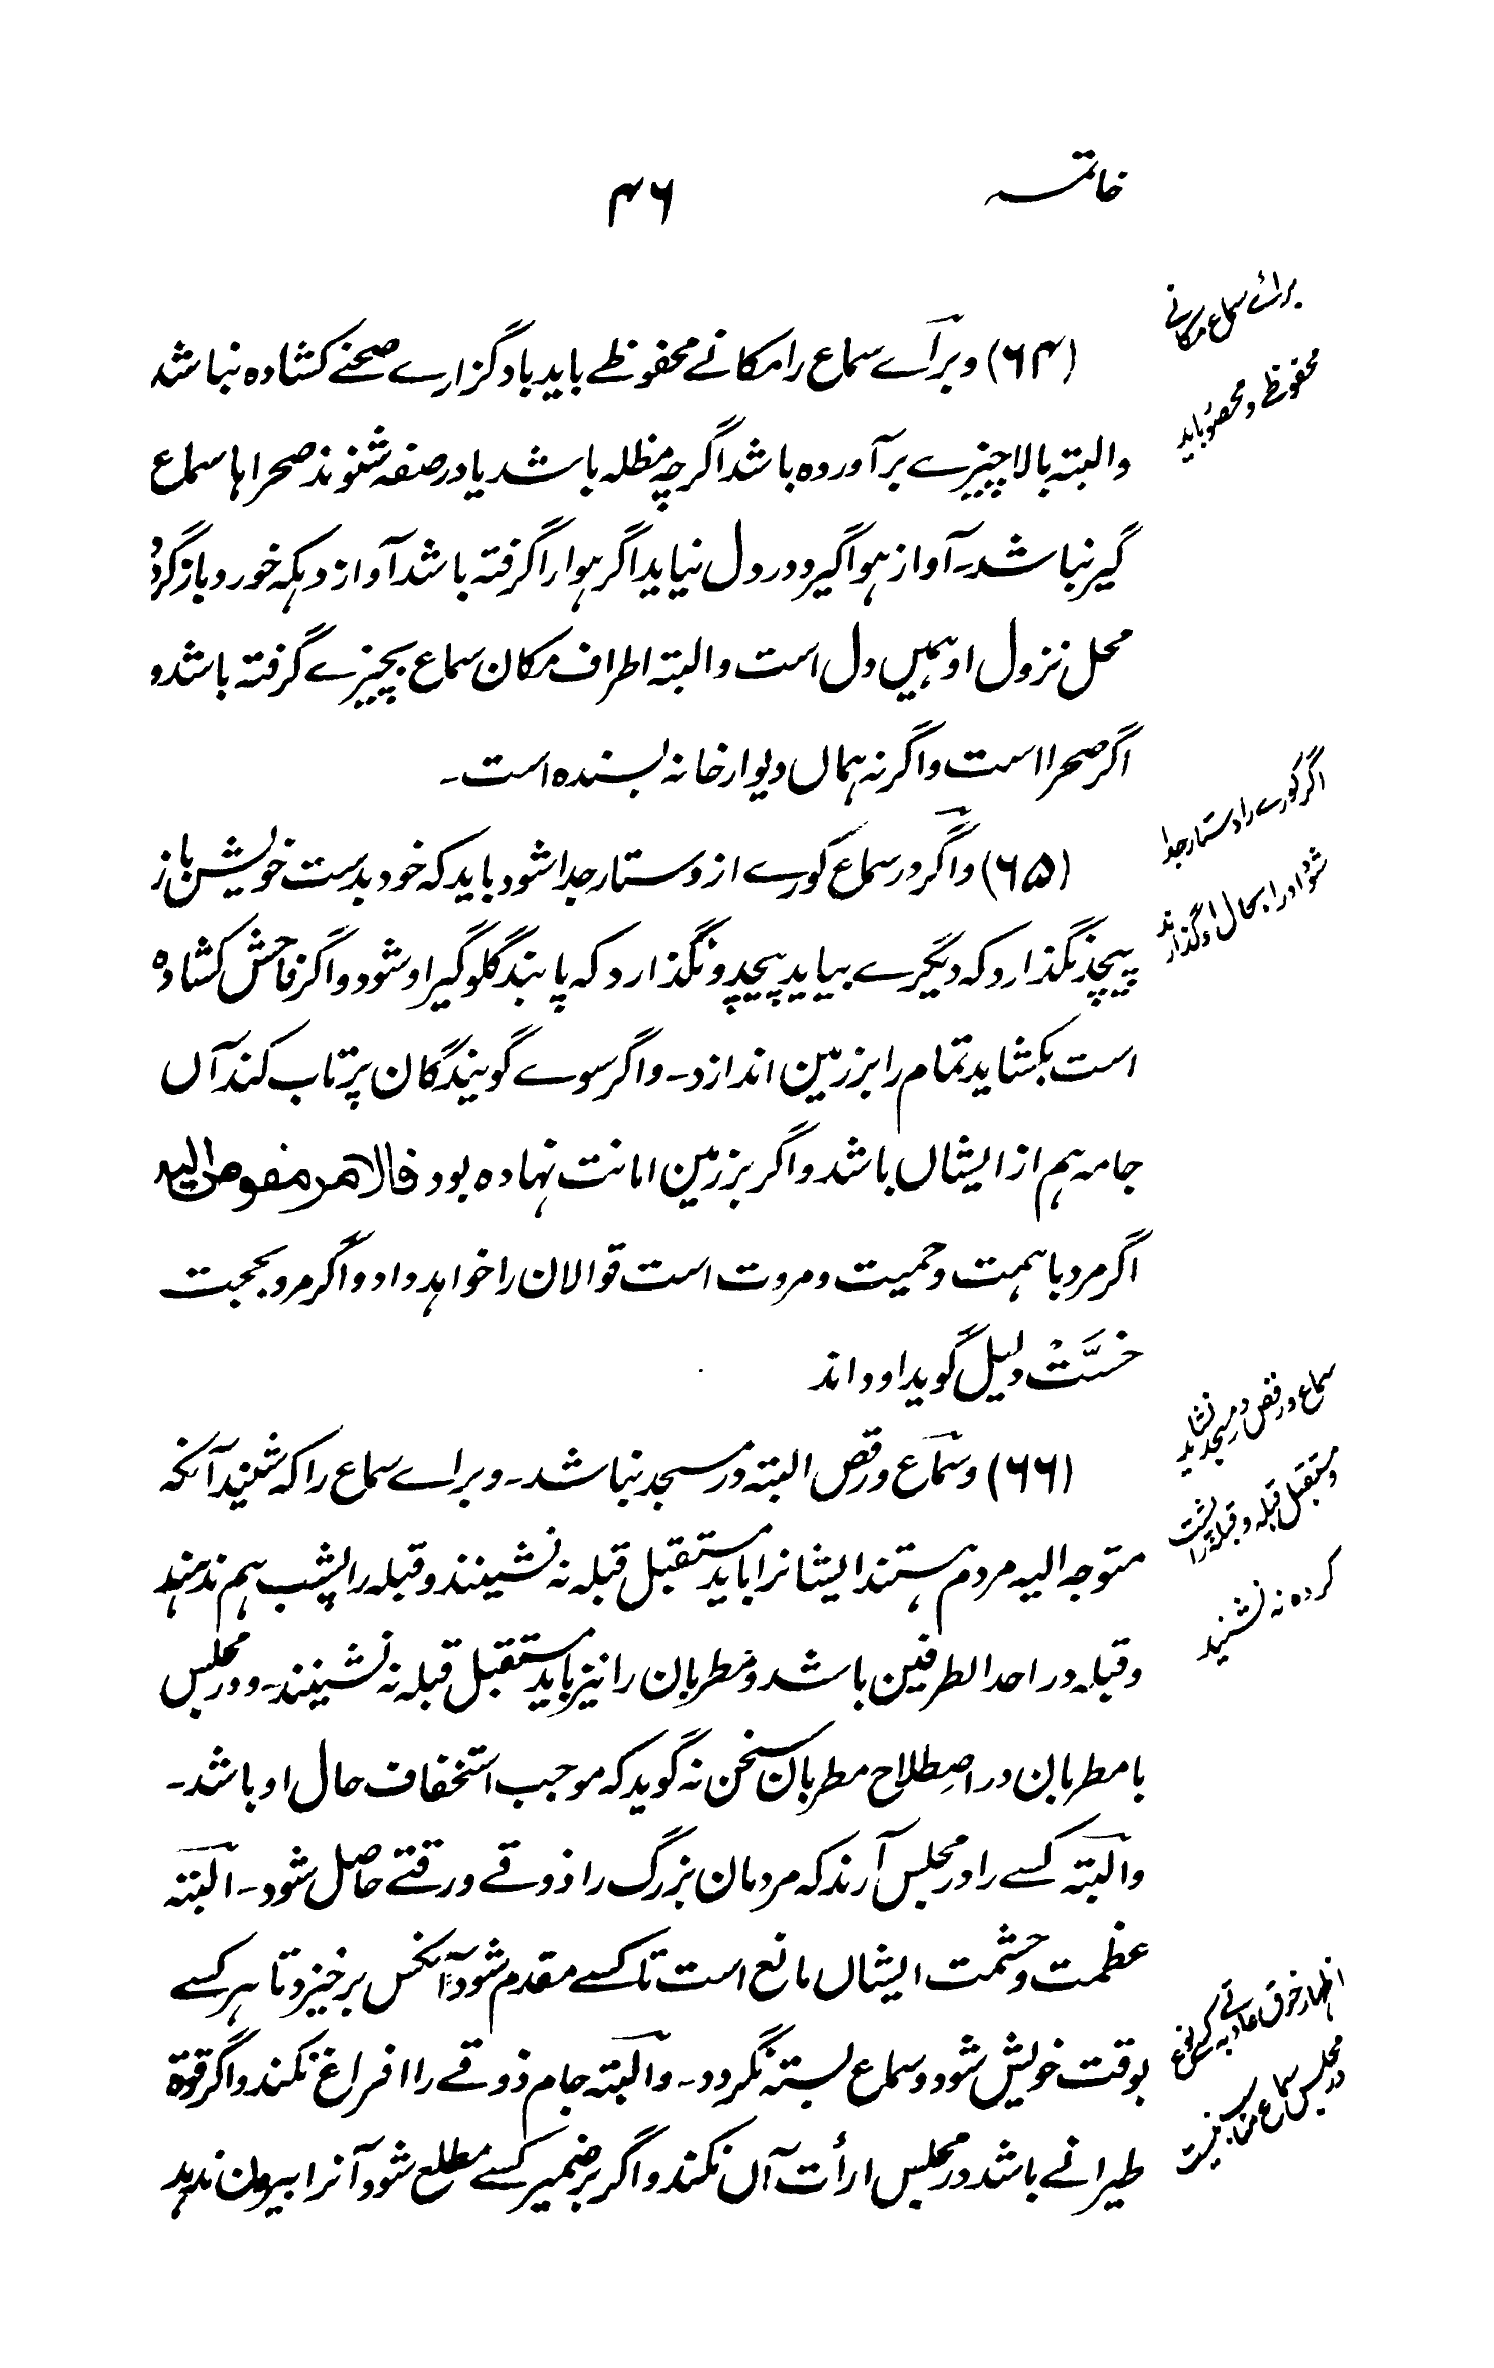 خاتمہ
۴۶
براے سماع مکانے
محفوظ و محصور باید
(۶۴) و براے سماع را مکانے محفوظے باید باد گزارے صحنے کشادہ نباشد
والبتہ بالا چیزے برآوردہ باشد اگرچہ مظلہ باشد یا در صفہ شنوند صحراہا سماع
گیر نباشد۔ آواز ہوا گیرد و در دل نیاید اگر ہوا را گرفتہ باشد آواز دیکہ خورد باز گرد
محل نزول او ہمیں دل است والبتہ اطراف مکان سماع بچیزے گرفتہ باشد و
اگر صحرا است واگرنہ ہماں دیوار خانہ بسندہ است۔
اگر کورے را دستار جدا
شود اورا بحال او گذارند
(۶۵) واگر در سماع کورے از دستار جدا شود باید کہ خود بدست خویش باز
پیچد نگذارد کہ دیگرے بیاید پیچد و نگذارد کہ پابند گلوگیر او شود واگر فاحش کشادہ
است بکشاید تمام را بر زمین اندازد۔ واگر سوے گویندگان پرتاب کند آں
جامہ ہم از ایشاں باشد واگر بر زمین امانت نہادہ بود فالامر مفوض الیہ
اگر مرد با ہمت و حمیت و مروت است قوالان را خواہد داد واگر مرد بحجت
خسَّتْ دلیل گوید او داند
سماع و رقص در مسجد نشاید
و مستقبل قبلہ و قبلہ را پشت
کردہ نہ نشنید
(۶۶) وسماع و رقص البتہ در مسجد نباشد۔ و براے سماع را کہ شنید آنکہ
متوجہ الیہ مردم ہستند ایشانرا باید مستقبل قبلہ نہ نشینند و قبلہ را پشت ہم ندہند
و قبلہ در احد الطرفین باشد و مطربان را نیز باید مستقبل قبلہ نہ نشینند۔ و در مجلس
با مطربان در اصطلاح مطربان سخن نہ گوید کہ موجب استخفاف حال او باشد۔
والبتہ کسے را در مجلس آرند کہ مردمان بزرگ را ذوقے و رقتے حاصل شود۔ البتہ
عظمت و حشمت ایشاں مانع است تا کسے مقدم شود آنکس برخیزد تا ہر کسے
اظہار خرق عادتے بہر نوع
در مجلس سماع مناسب نیست
بوقت خویش شود و سماع بستہ نگردد۔ والبتہ جام ذوقے را افراغ نکند واگر قوۃ
طیرانے باشد در مجلس ارأت آں نکند واگر بر ضمیر کسے مطلع شود آنرا بیرون ندہد